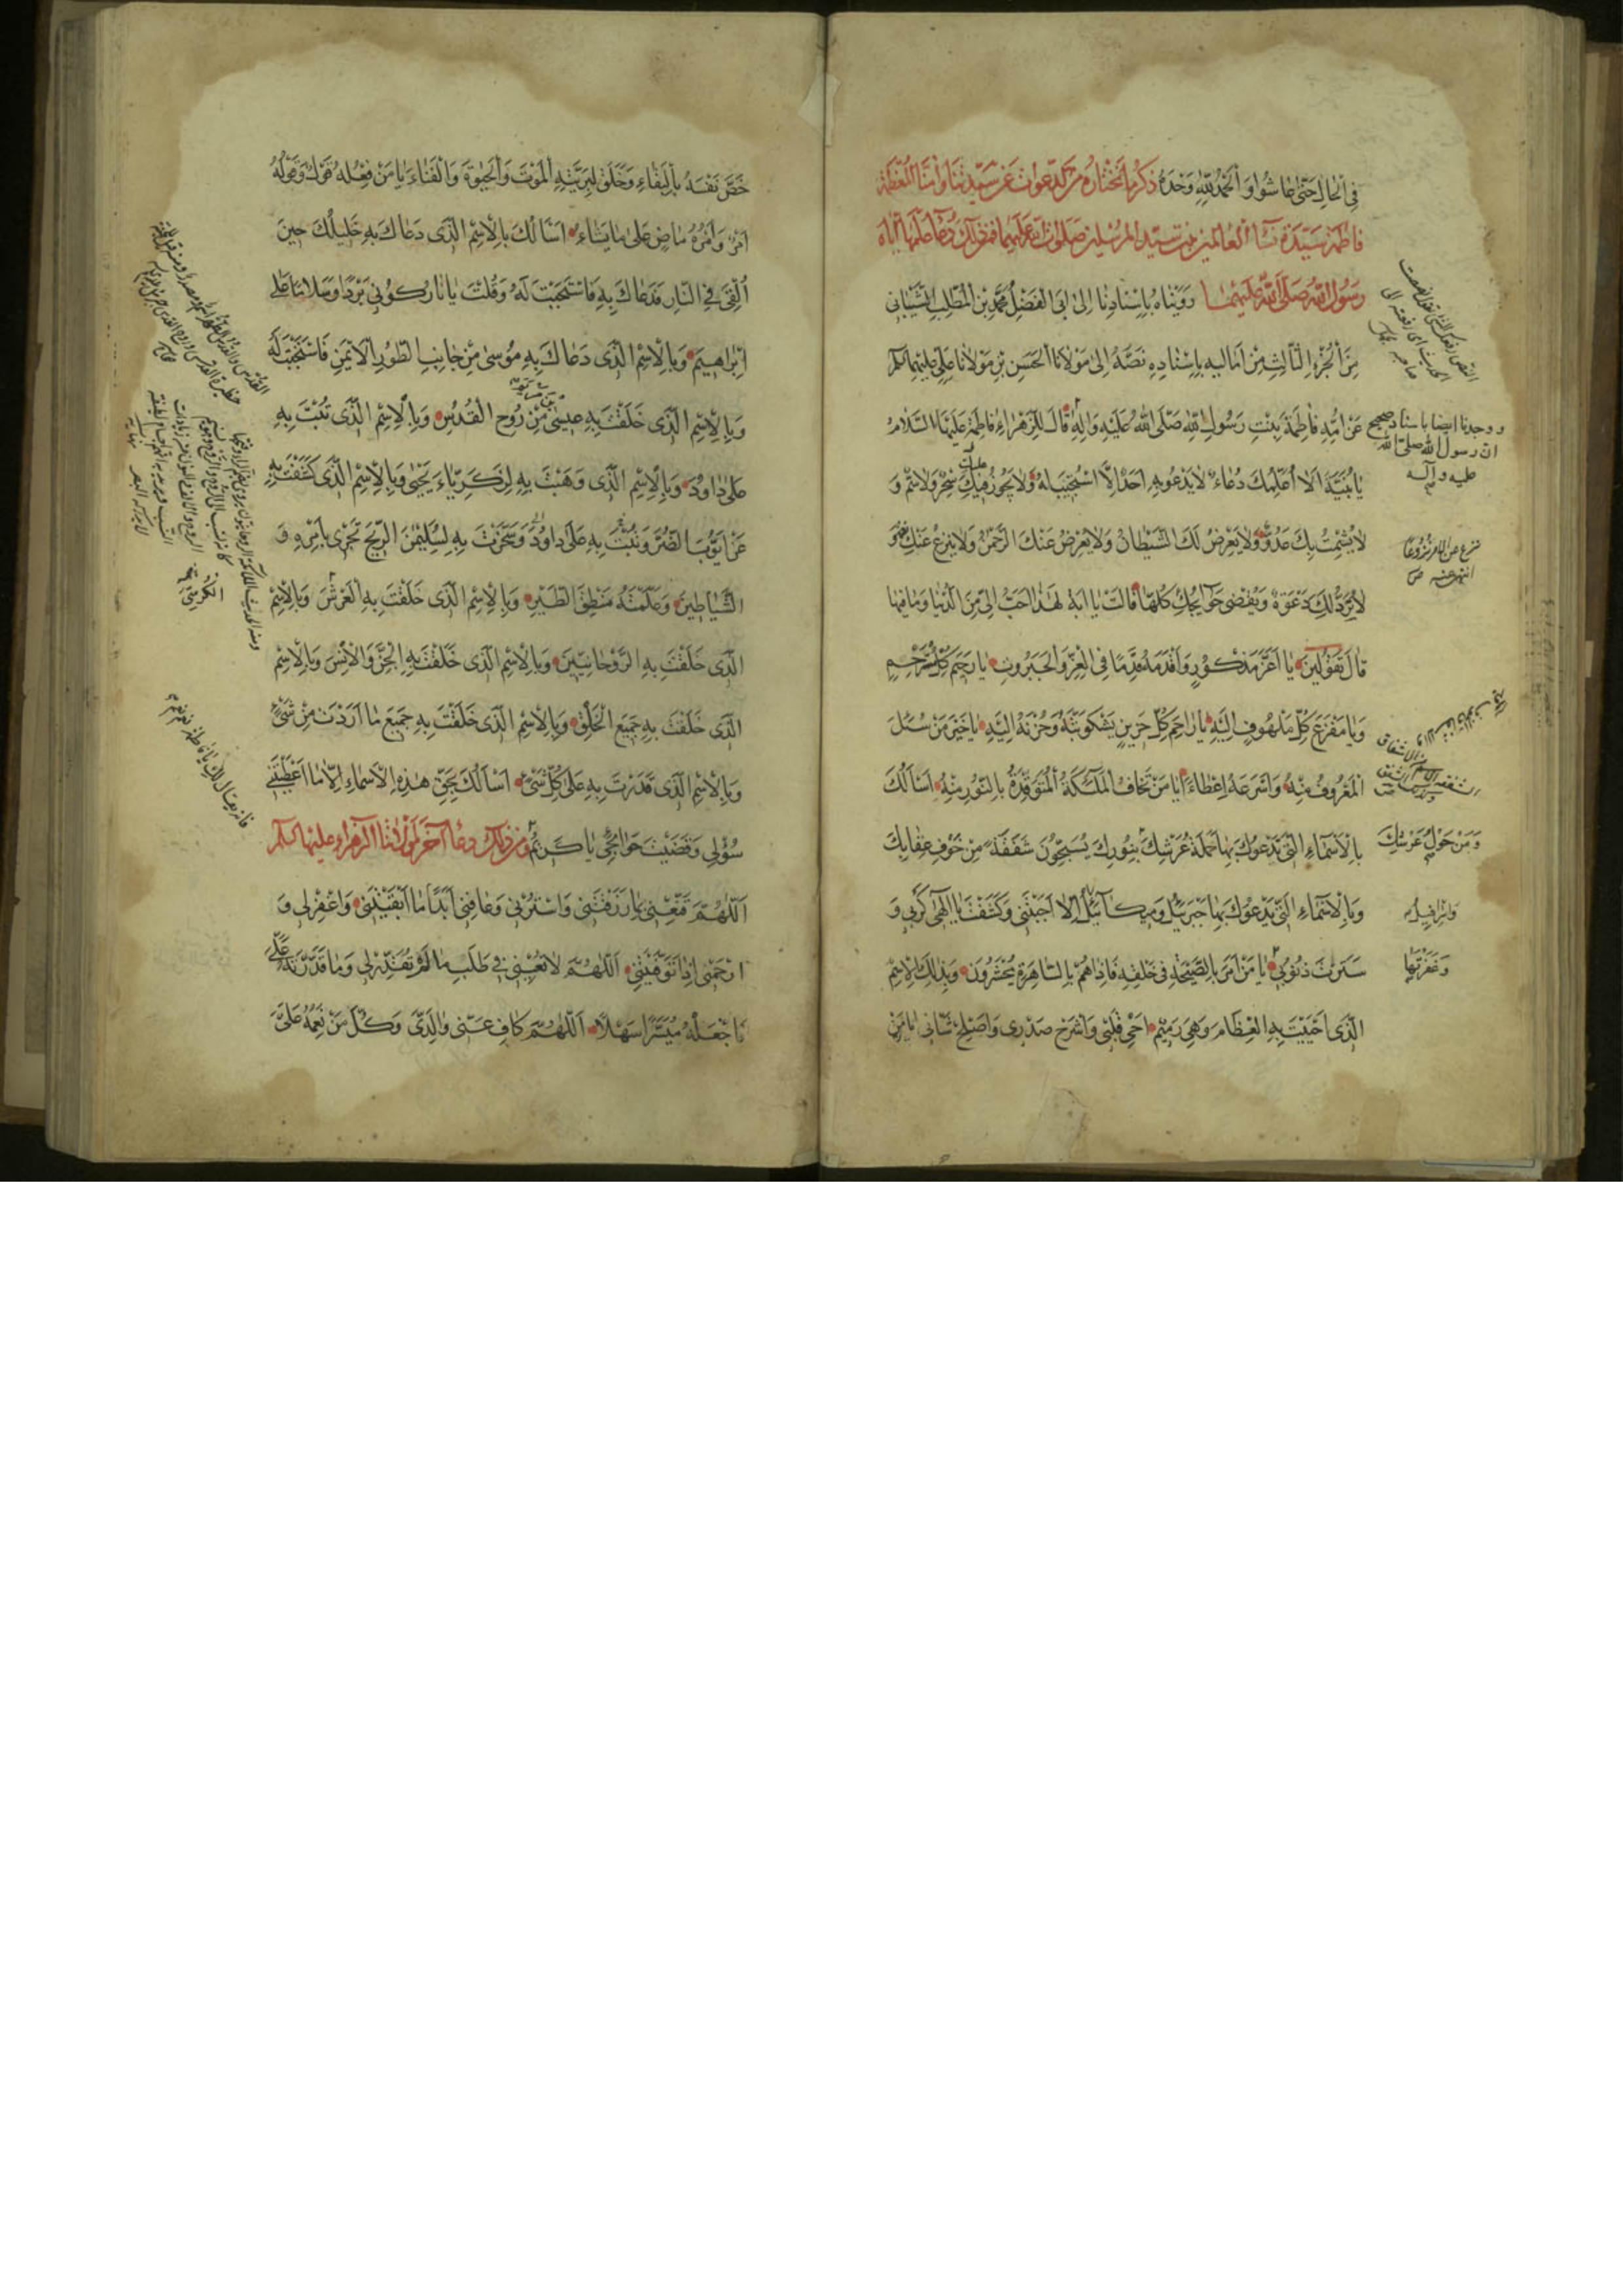 في الحال حتى عاشوا والحمد لله وحده ذكر ما نختاره من الدعوات عن سيدتنا وامنا المعظمة
فاطمة سيدة نساء العالمين بنت سيد المرسلين صلوات الله عليهما فمن ذلك دعاء علمها اياه
رسول الله صلى الله عليهما رويناه باسنادنا الى ابى الفضل محمد بن المطلب الشيبانى
من الجزء الثالث من اماليه باسناده نصه الى مولانا الحسن بن مولانا على عليهما السلام
عن امه فاطمة بنت رسول الله صلى الله عليه واله قال للزهراء فاطمة عليها السلام
يا بنية الا اعلمك دعاء لا يدعو به احد الا استجيب له ولا يجوز فيك سحر ولا سم و
لا يشمت بك عدو ولا يعرض لك الشيطان ولا يعرض عنك الرحمن ولا ينزع عنك نعمة و
لا يرد لك دعوة ويقضى حوايجك كلها قالت يا ابة لهذا احب الى من الدنيا وما فيها
قال تقولين يا اعز مذكور واقدمه قدما فى العز والجبروت يا رحيم كل مسترحم
ويا مفزع كل ملهوف اليه يا راحم كل حزين يشكو بثه وحزنه اليه يا خير من سئل
المعروف منه واسرعه اعطاء يا من تخاف الملئكة المتوقدة بالنور منه اسالك
بالاسماء التى تدعوك بها حملة عرشك بنورك يسبحون شفقة من خوف عقابك
وبالاسماء التى يدعوك بها جبرئيل وميكائيل الا اجبتنى وكشفت يا الهى كربى و
سترت ذنوبى يا من امر بالصيحة فى خلقه فاذا هم بالساهرة يحشرون وبذلك الاسم
الذى احييت به العظام وهى رميم احى قلبى واشرح صدرى واصلح شانى يا من
ووجدنا ايضا باسناد صحيح
ان رسول الله صلى الله
عليه وآله
عليك
نزع عن الامر نزوعا
انتهى عنه ص
ومن حول عرشك
واسرافيل
وغفرتها
خص نفسه بالبقاء وخلق لبريته الموت والحيوة والفناء يا من فعله قول وقوله
امر وامره ماض على ما يشاء اسالك بالاسم الذى دعاك به خليلك حين
القى فى النار فدعاك به فاستجبت له وقلت يا نار كونى بردا وسلاما على
ابراهيم وبالاسم الذى دعاك به موسى من جانب الطور الايمن فاستجبت له
وبالاسم الذى خلقت به عيسى من روح القدس وبالاسم الذى تبت به
على داود وبالاسم الذى وهبت به لزكرياء يحيى وبالاسم الذى كشفت به
عن ايوب الضر وتبت به على داود وسخرت به لسليمن الريح تجرى بامره و
الشياطين وعلمته منطق الطير وبالاسم الذى خلقت به العرش وبالاسم
الذى خلقت به الروحانيين وبالاسم الذى خلقت به الجن والانس وبالاسم
الذى خلقت به جميع الخلق وبالاسم الذى خلقت به جميع ما اردت من شئ
وبالاسم الذى قدرت به على كل شئ اسالك بحق هذه الاسماء الا ما اعطيتنى
سؤلى وقضيت حوائجى يا كريم ومن ذلك دعاء آخر لمولاتنا الزهراء عليها السلام
اللهم قنعنى بما رزقتنى واسترنى وعافنى ابدا ما ابقيتنى واغفر لى و
ارحمنى اذا توفيتنى اللهم لا تعينى فى طلب ما لم تقدره لى وما قدرته على
فاجعله ميسرا سهلا اللهم كاف عنى والدى وكل من نعمه على
الكرسى